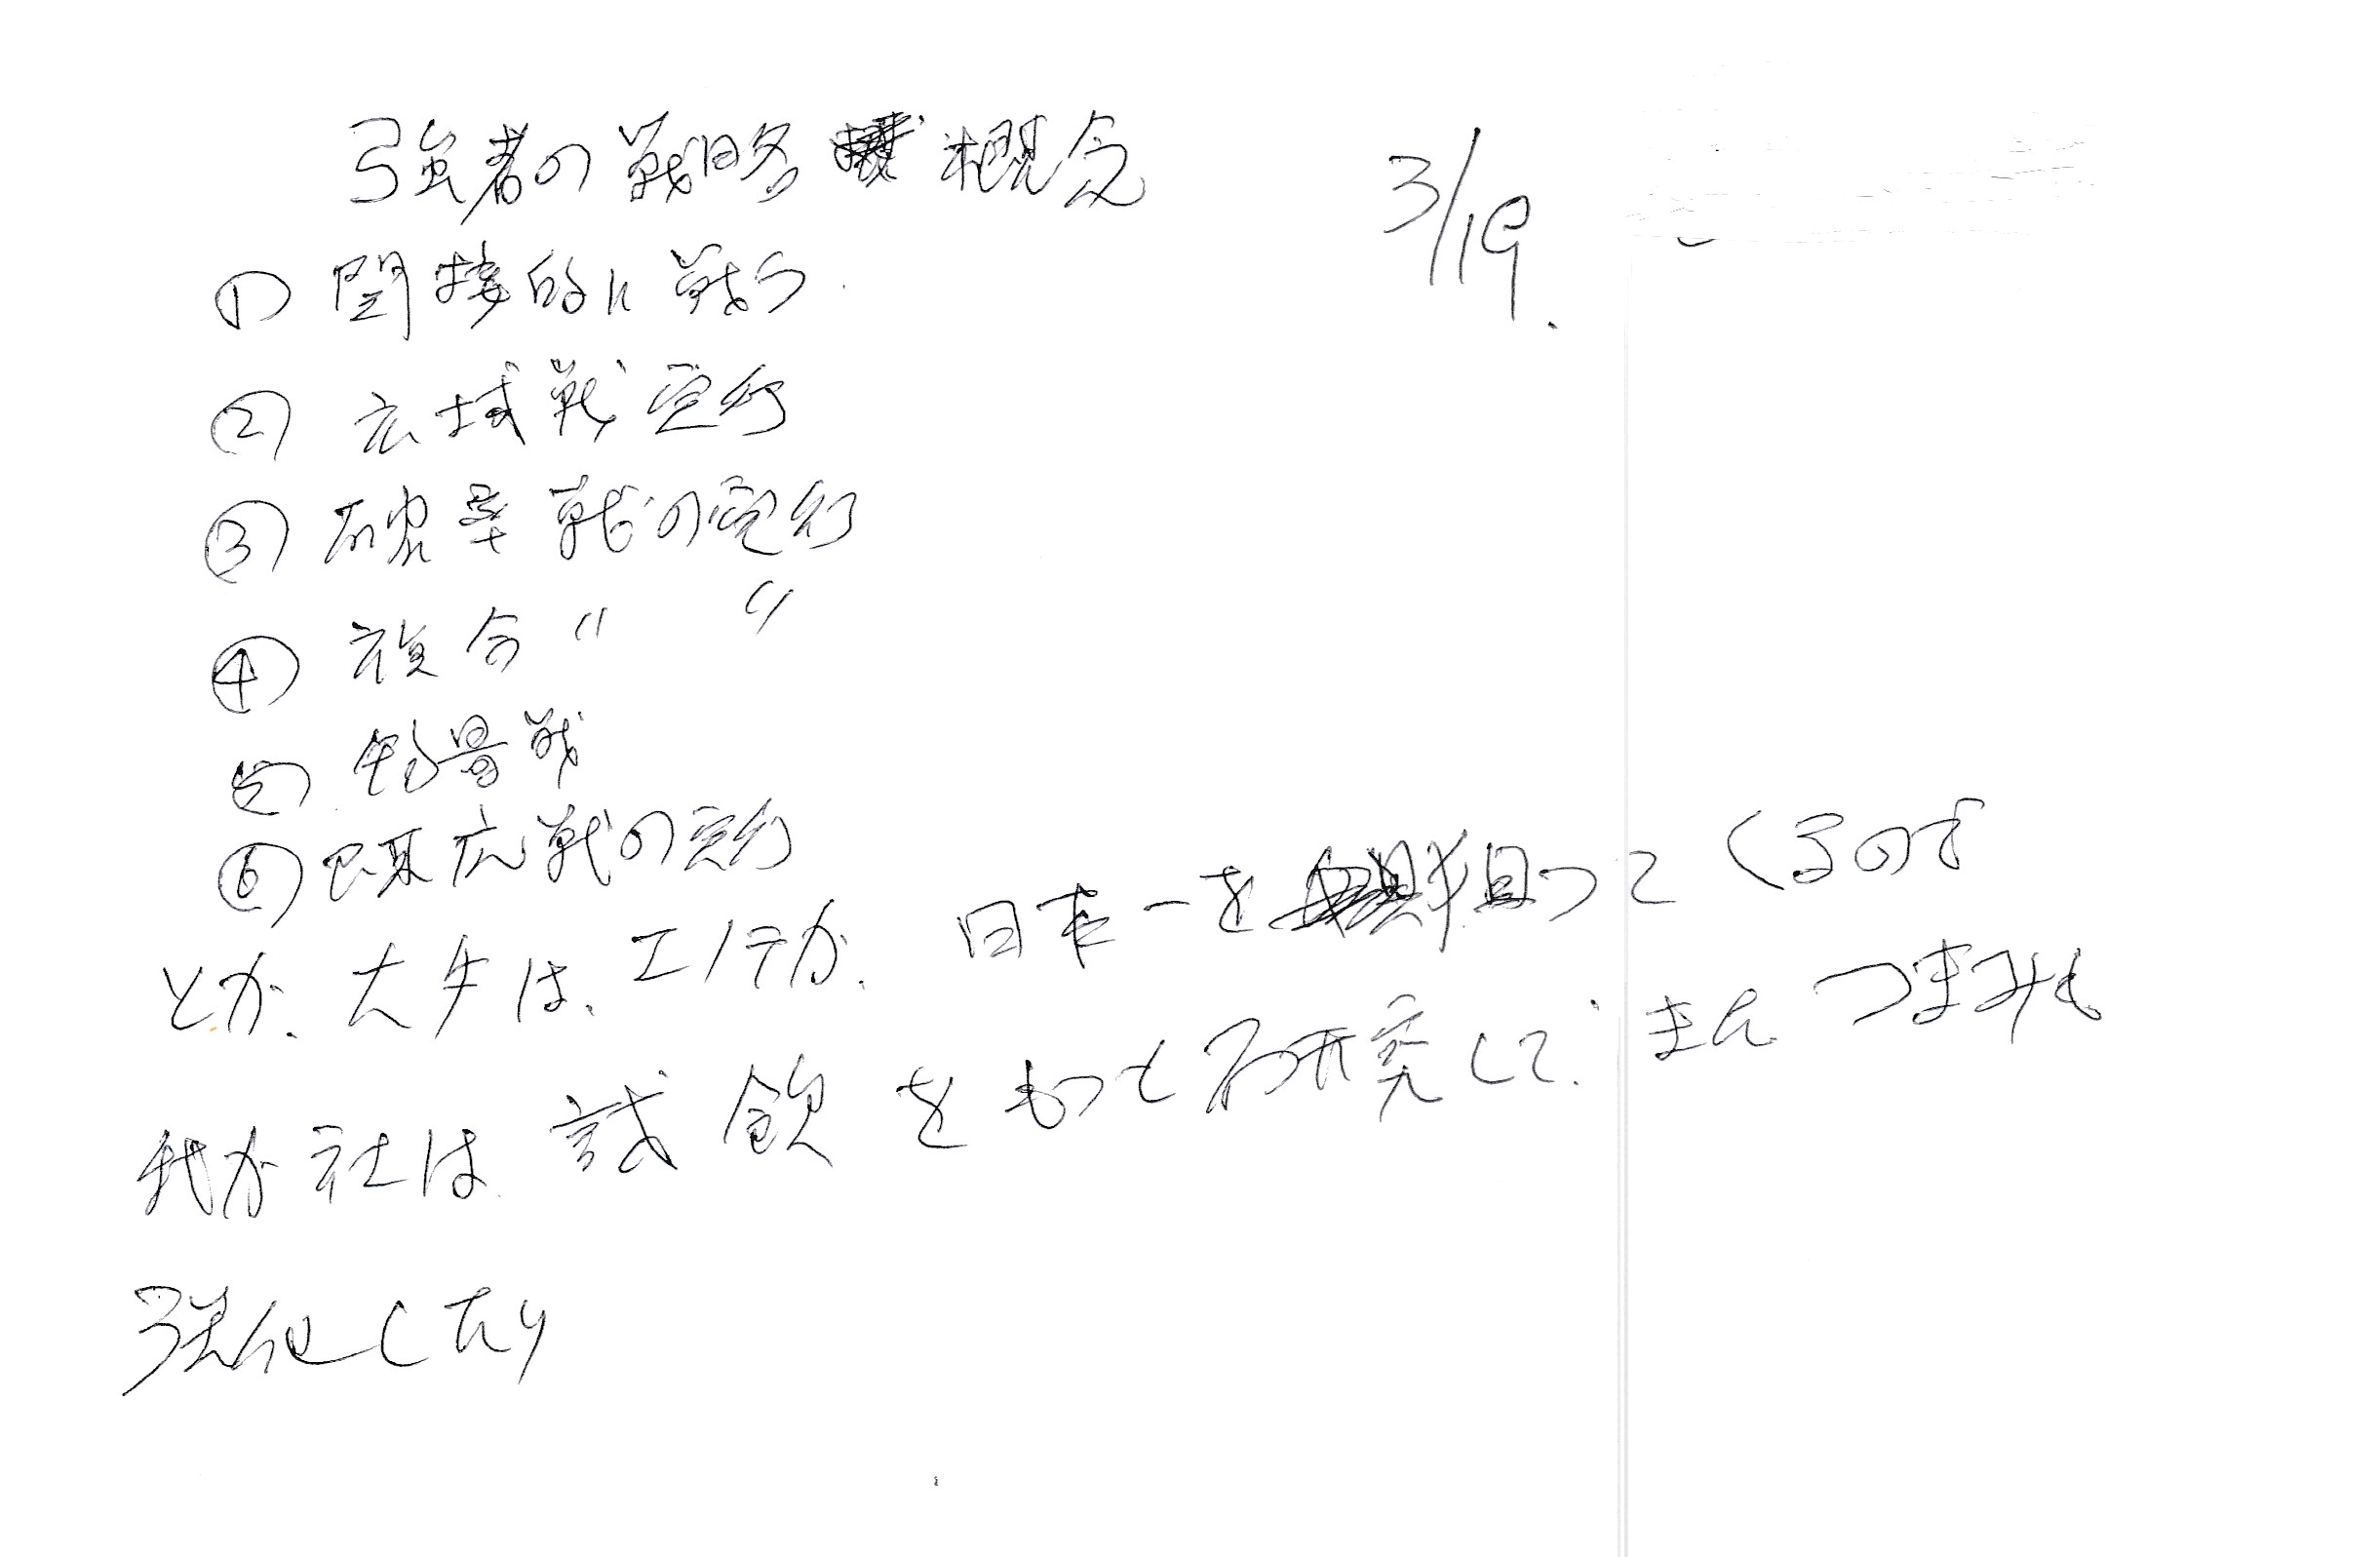 強者の戦略概念
3/19.
① 間接的に戦う.
② 広域戦実行
③ 確率戦の実行
④ 複合〃 〃
⑤ 物量戦
⑥ 陽広戦の実行
とか、大手は、エノテカ、日本一を狙ってくるので
我が社は、試飲をもっと研究して、また つまみも
強化したり